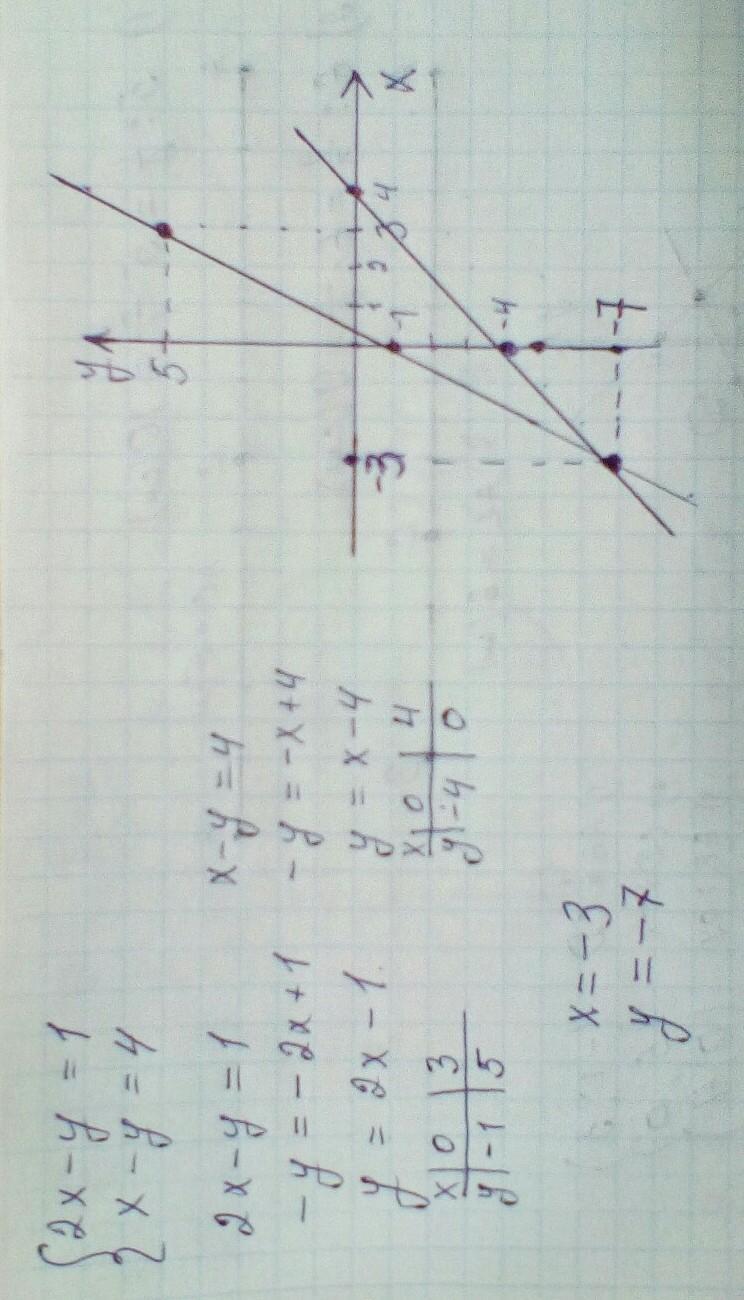 {2x-y=1
x-y=4
2x-y=1
-y=-2x+1
y=2x-1.
x|0|3
y|-1|5
x-y=4
-y=-x+4
y=x-4
x|0|4
y|-4|0
x=-3
y=-7
y
5
x
-3
1
2
3
4
-1
-4
-7